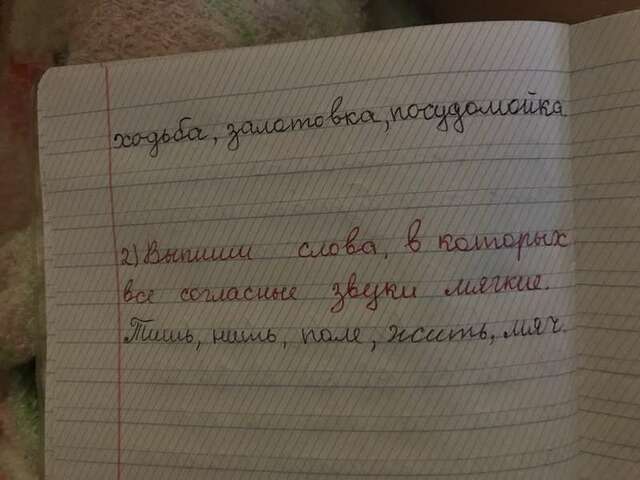 ходьба, заготовка, посудомойка
2) Выпиши слова, в которых
все согласные звуки мягкие.
Тишь, ниль, поле, жить, мяч.